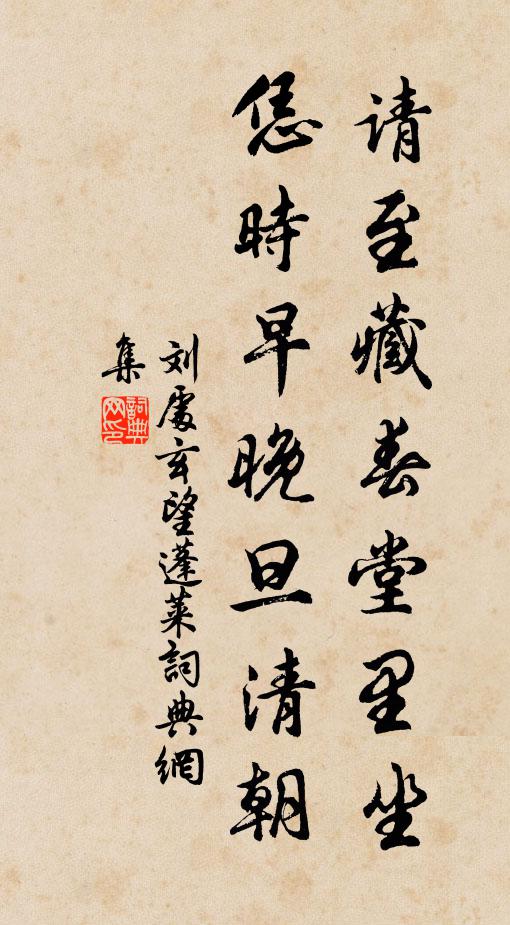 请至藏春堂里坐
恁時早晚旦清朝
刘處玄望蓬莱詞典網
集
詞典网印